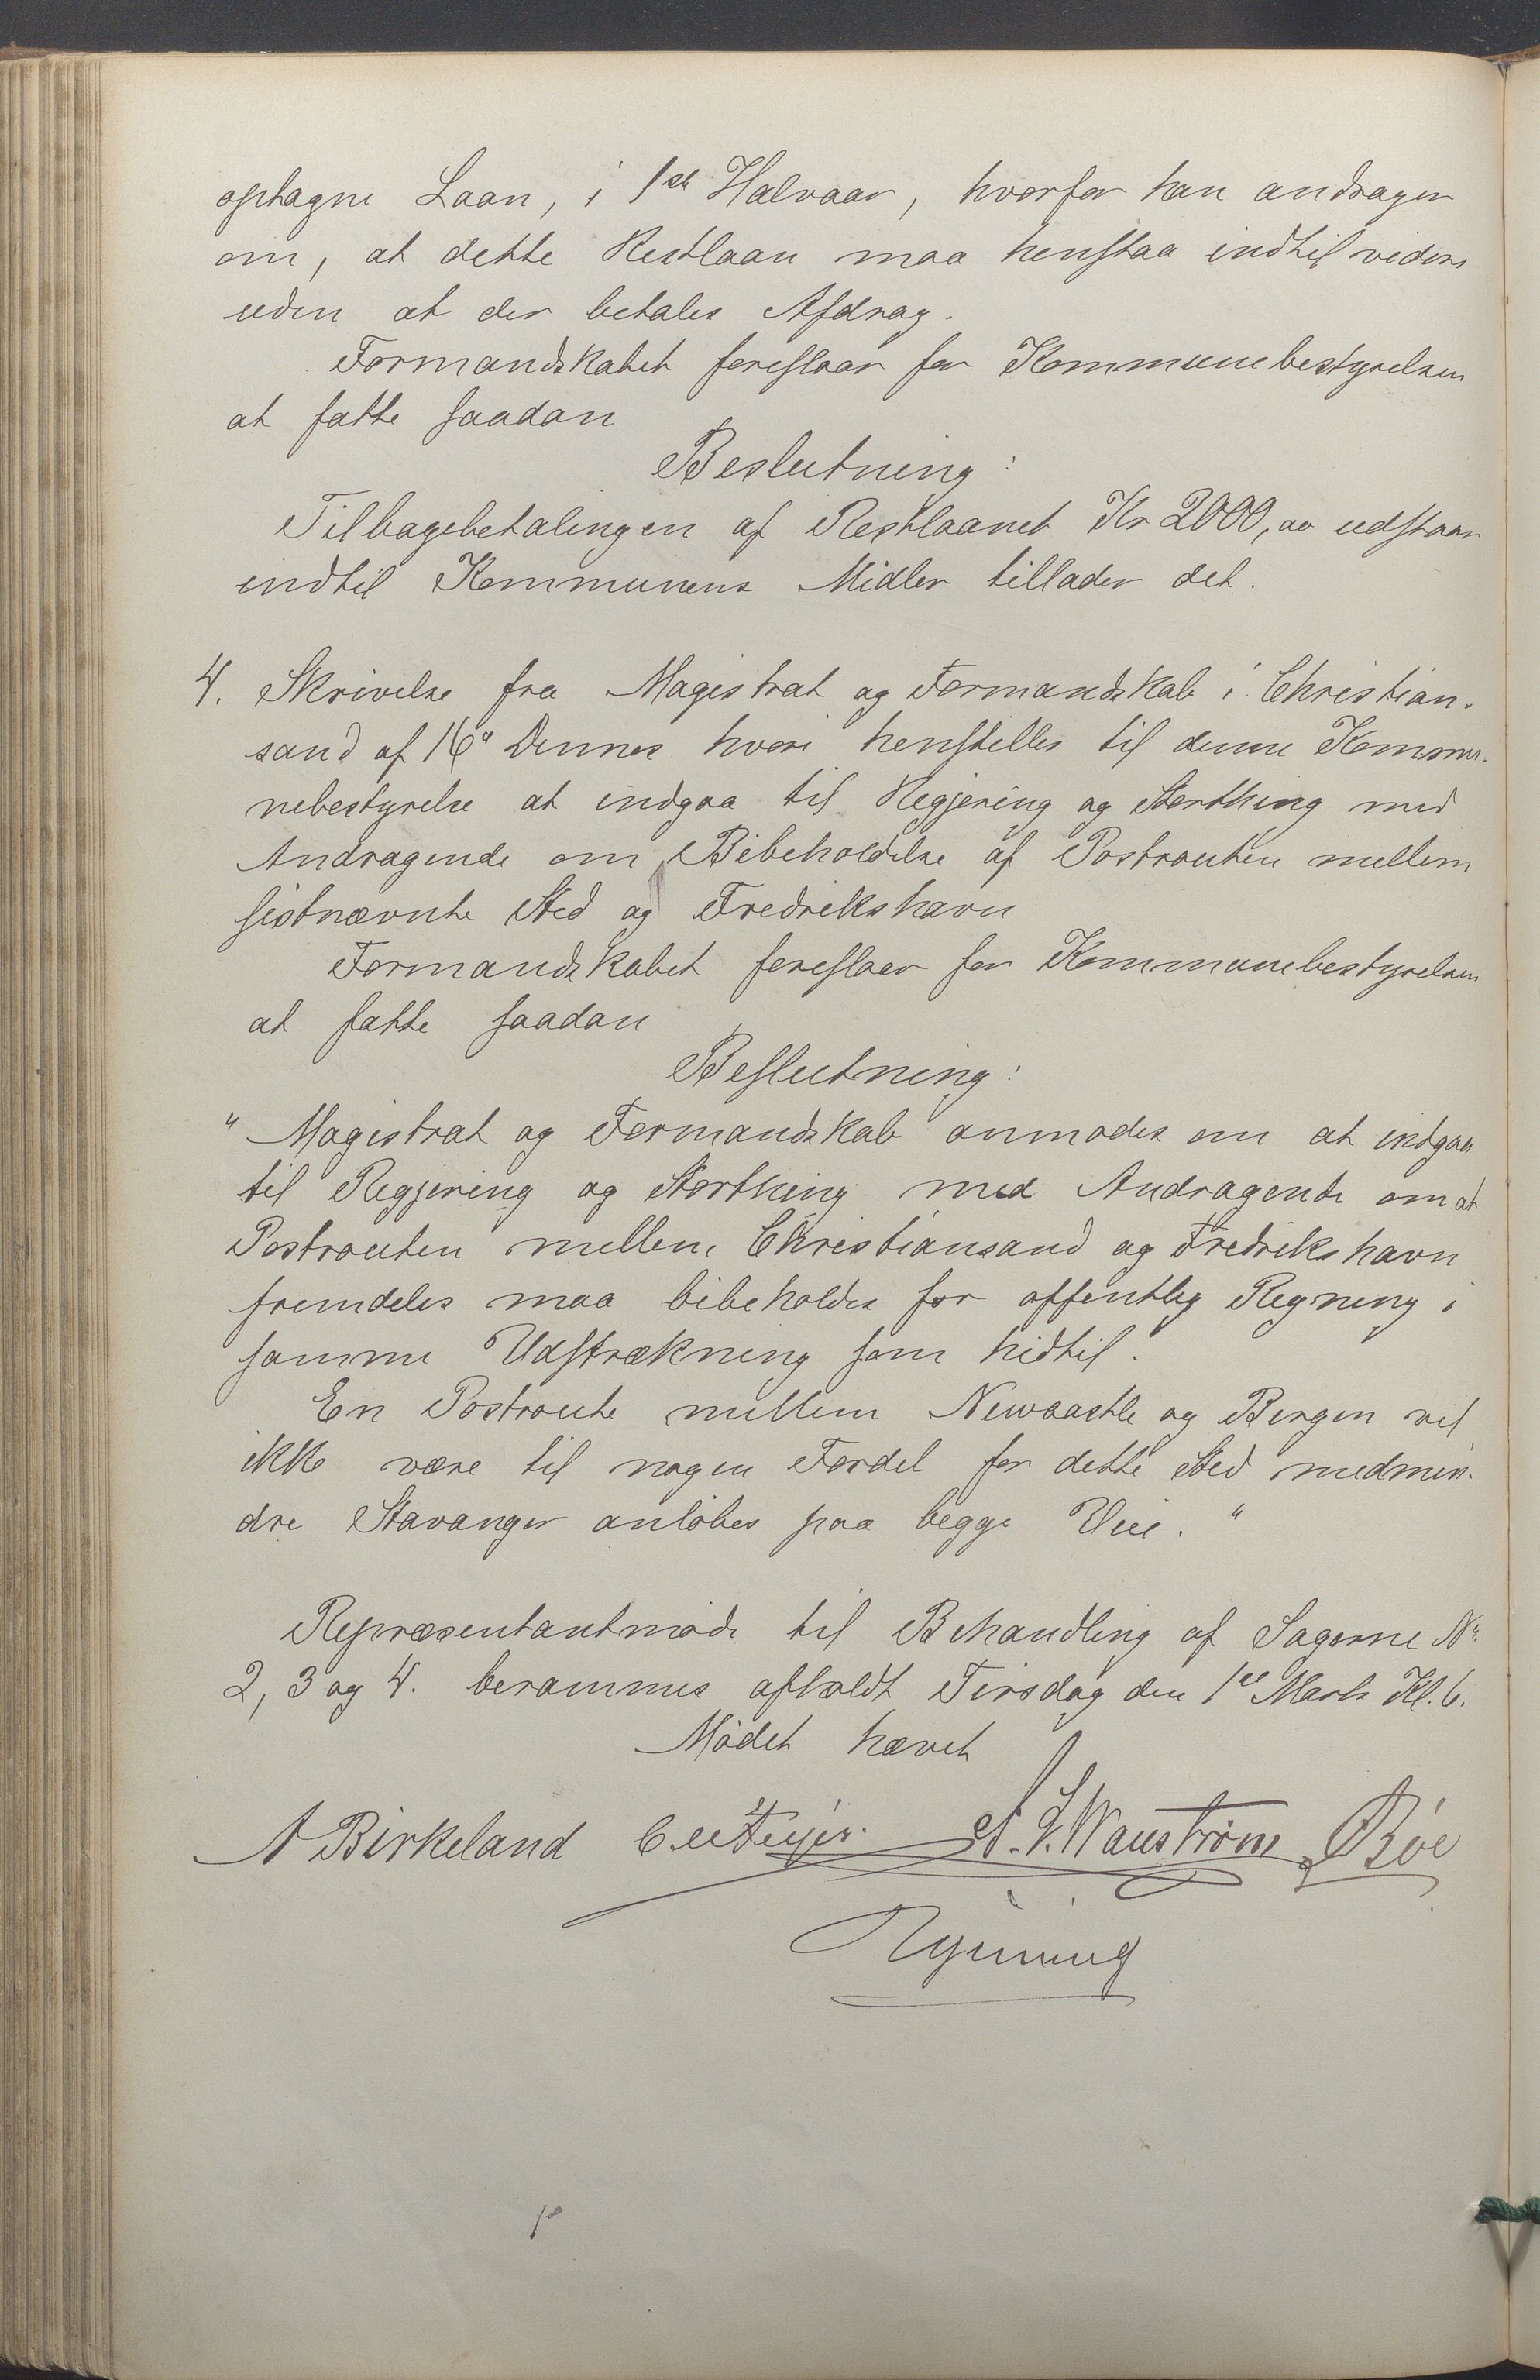 optagne Laan, i 1ste Halvaar, hvorfor han andrager
om, at dette Restlaan maa henstaa indtil videre
uden at der betales Afdrag.
Formandskabet foreslaar for Kommunebestyrelsen
at fatte saadan
Beslutning:
Tilbagebetalingen af Restlaanet Kr 2000,00 udstaar
indtil Kommunens Midler tillader det.
4. Skrivelse fra Magistrat og Formandskab i Christian-
sand af 16de Dennes hvori henstilles til denne Kommu-
nebestyrelse at indgaa til Regjering og Storthing med
Andragende om Bibeholdelse af Postrouten mellem
sistnævnte Sted og Fredrikshavn
Formandskabet foreslaar for Kommunebestyrelsen
at fatte saadan
Beslutning:
"Magistrat og Formandskab anmodes om at indgaa
til Regjering og Storthing med Andragende om at
Postrouten mellem Christiansand og Fredrikshavn
fremdeles maa bibeholdes for offentlig Regning i
samme Udstrækning som hidtil.
En Postroute mellem Newcastle og Bergen vil
ikke være til nogen Fordel for dette Sted medmin-
dre Stavanger anløbes paa begge Veie."
Repræsentantmøde til Behandling af Sagerne No.
2, 3 og 4. berammes afholdt Tirsdag den 1ste Marts Kl. 6.
Mødet hævet
A Birkeland St. V. Wanstrøm Bøe